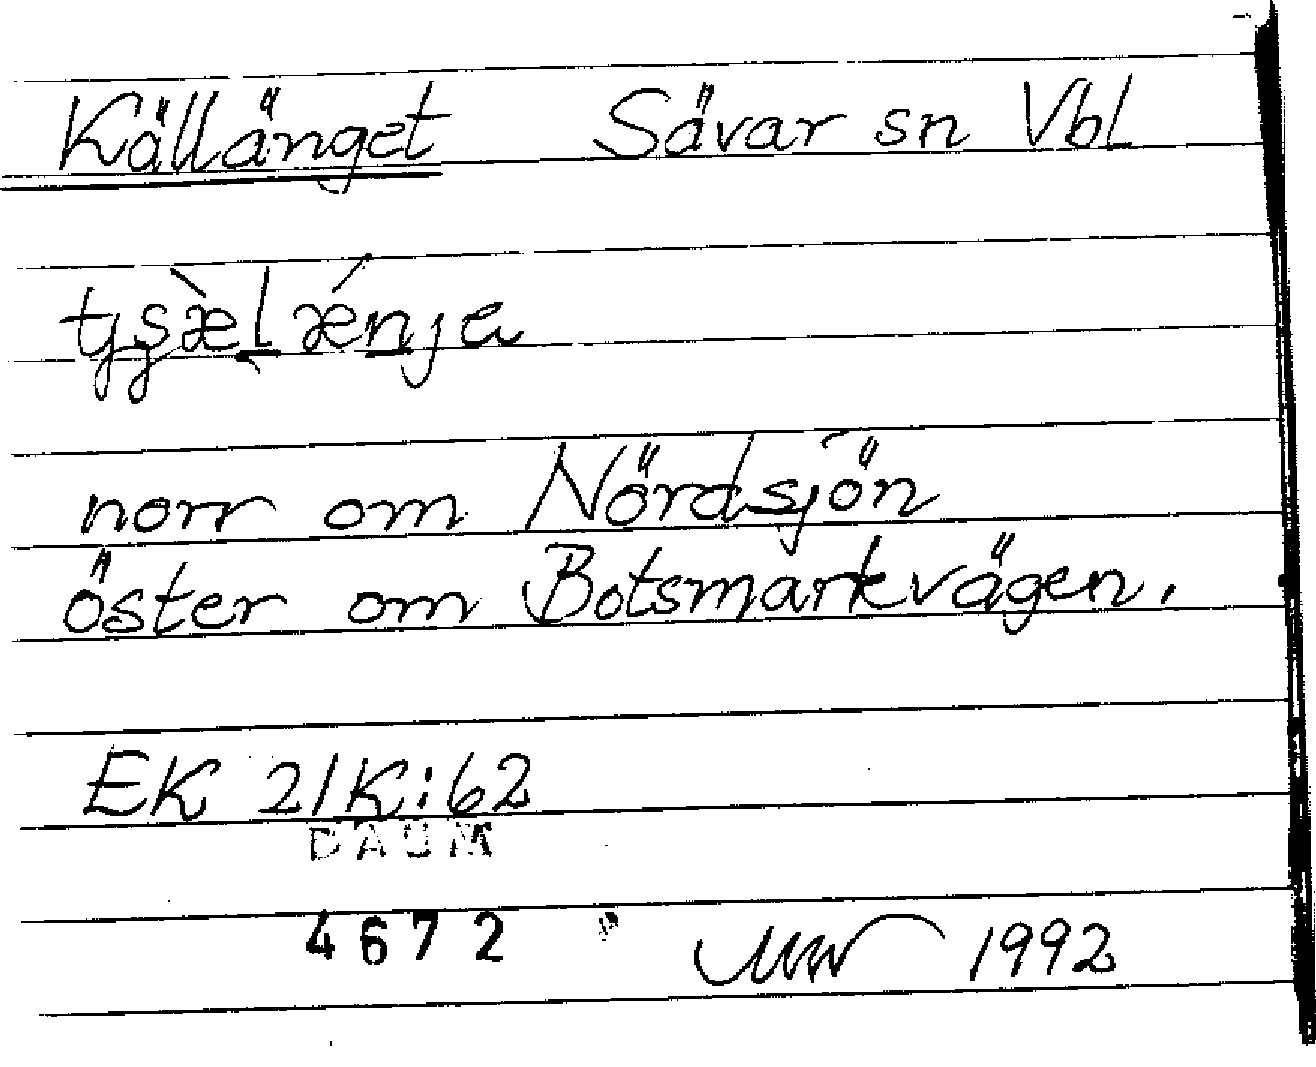 Källänget Sävar sn Vbl
norr om Nördsjön
öster om Botsmarkvägen.
EK 21K:62
DAUM
4672 1992